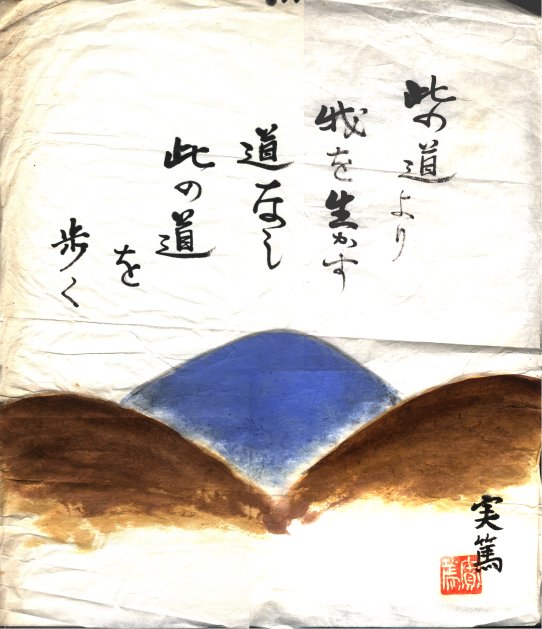 此の道より
我を生かす
道なし
此の道
を
歩く
実篤
實篤